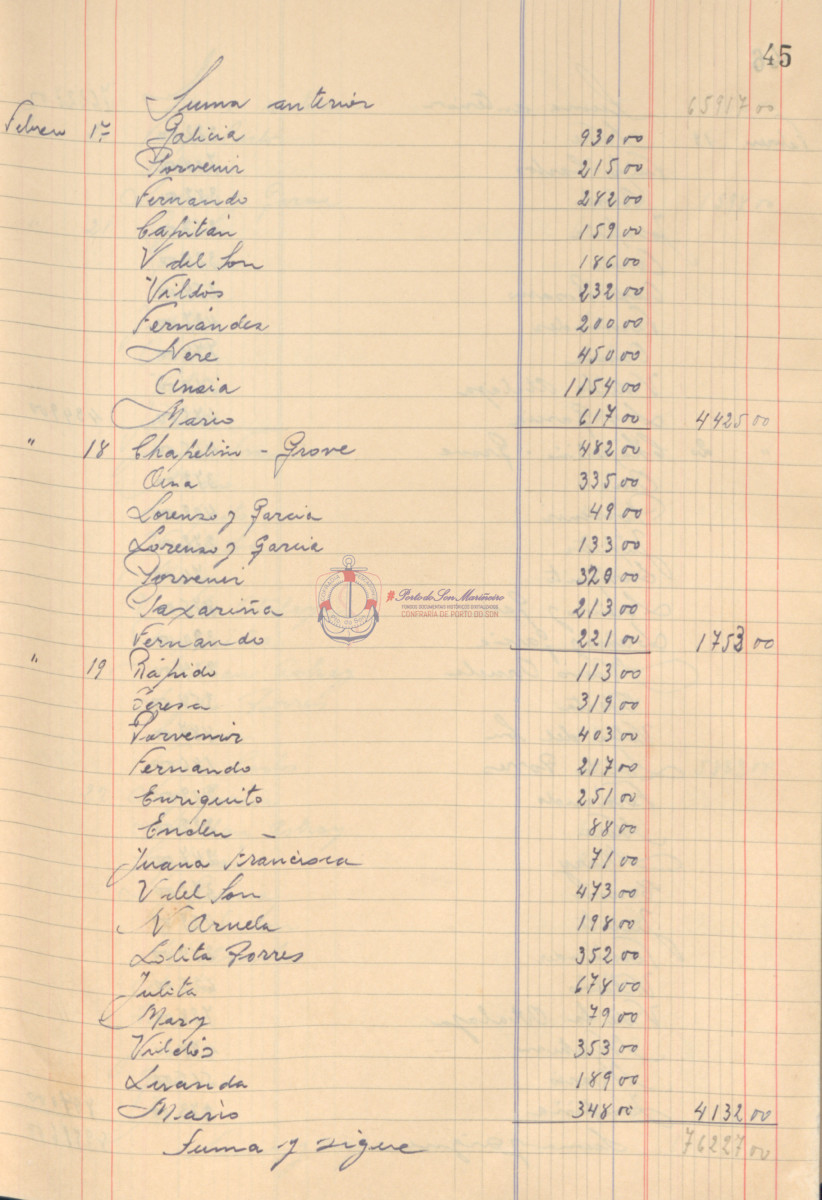 45
Suma anterior 65917 00
Febrero 17 Galicia 930 00
Porvenir 215 00
Fernando 282 00
Capitán 159 00
V del Son 186 00
Vildós 232 00
Fernández 200 00
Nere 450 00
Ansia 1154 00
Mario 617 00 4425 00
" 18 Chapelino - Grove 482 00
Oina 335 00
Lorenzo y García 49 00
Lorenzo y García 133 00
Porvenir 320 00
Saxariña 213 00
Fernando 221 00 1753 00
" 19 Rápido 113 00
Teresa 319 00
Porvenir 403 00
Fernando 217 00
Enriquito 251 00
Enden - 88 00
Juana Francisca 71 00
V del Son 473 00
N Aruela 198 00
Lolita Torres 352 00
Julita 678 00
Mary 79 00
Vildós 353 00
Luranda 189 00
Mario 348 00 4132 00
Suma y sigue 76227 00
Porto do Son Mariñeiro
FONDOS DOCUMENTAIS HISTÓRICOS DIXITALIZADOS
CONFRARÍA DE PORTO DO SON